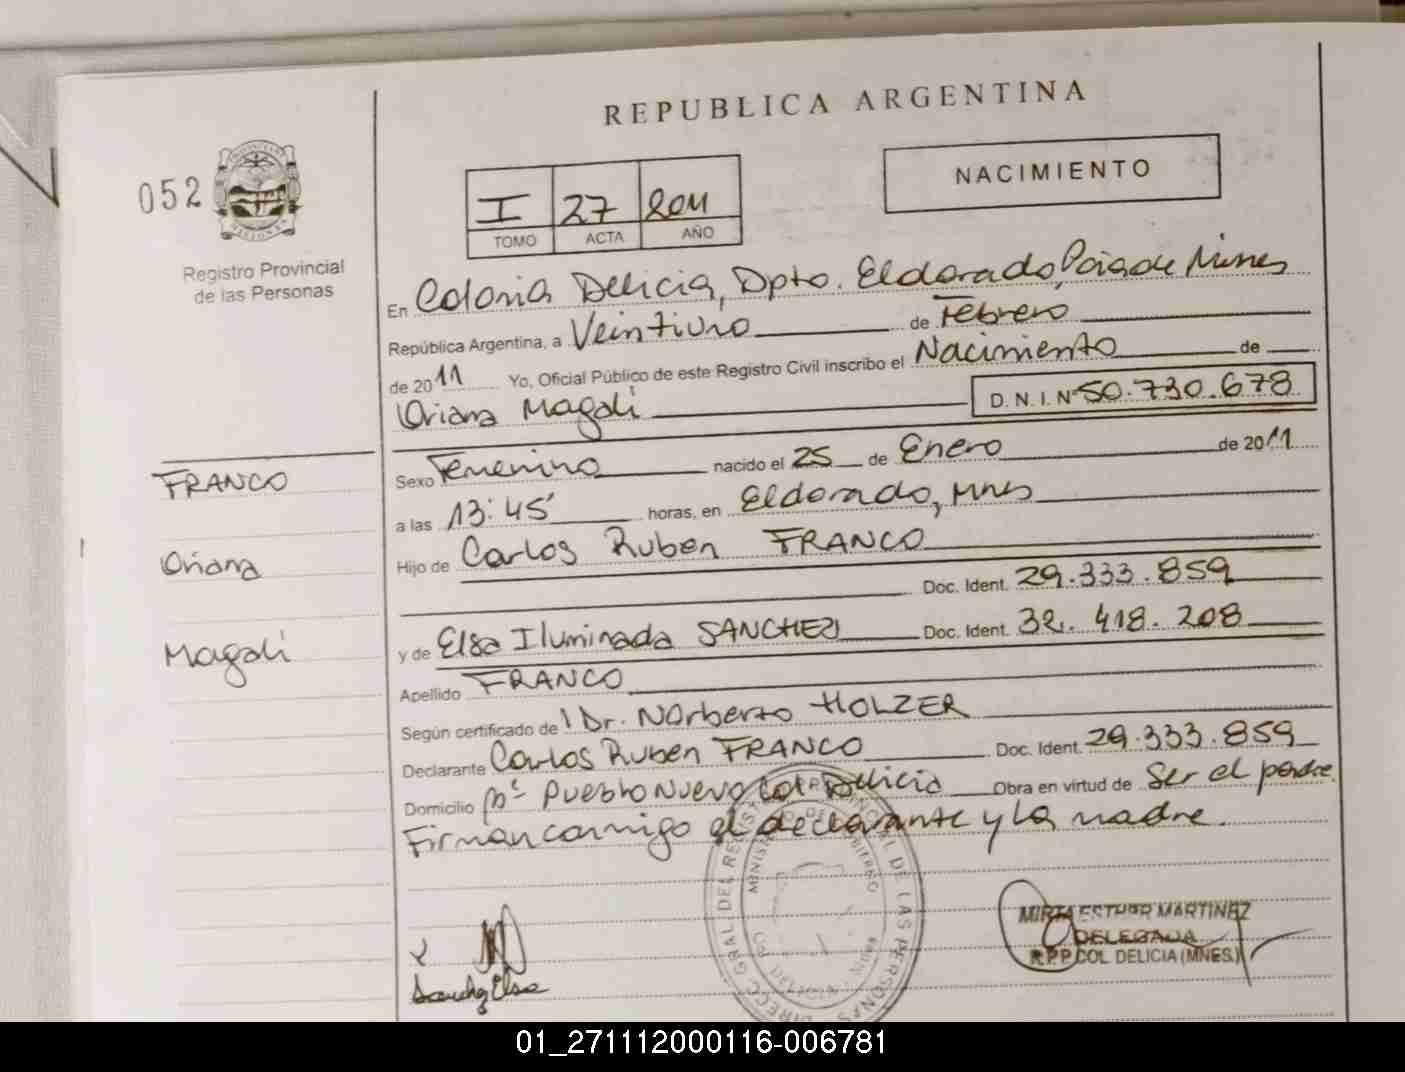 REPUBLICA ARGENTINA
052
I 27 2011
TOMO ACTA AÑO
NACIMIENTO
Registro Provincial
de las Personas
En Colonia Delicia, Dpto. Eldorado, Pcia de Mnes
República Argentina, a Veintiuno de Febrero
de 2011 Yo, Oficial Público de este Registro Civil inscribo el Nacimiento de
Oriana Magalí D. N. I. Nº 50.730.678
Sexo Femenino nacido el 25 de Enero de 2011
a las 13:45' horas, en Eldorado, Mnes
Hijo de Carlos Ruben FRANCO
Doc. Ident. 29.333.859
y de Elsa Iluminada SANCHEZ Doc. Ident. 32.418.208
Apellido FRANCO
Según certificado de Dr. Norberto HOLZER
Declarante Carlos Ruben FRANCO Doc. Ident. 29.333.859
Domicilio Bº Pueblo Nuevo Col Delicia Obra en virtud de Ser el padre
Firman conmigo el declarante y la madre.
FRANCO
Oriana
Magalí
DIRECC GRAL DEL REGIST PROVINCIAL DE LAS PERSONAS
MINIST
DELICIA
MIRTA ESTHER MARTINEZ
DELEGADA
R.P.P. COL DELICIA (MNES.)
Elsa
01_271112000116-006781